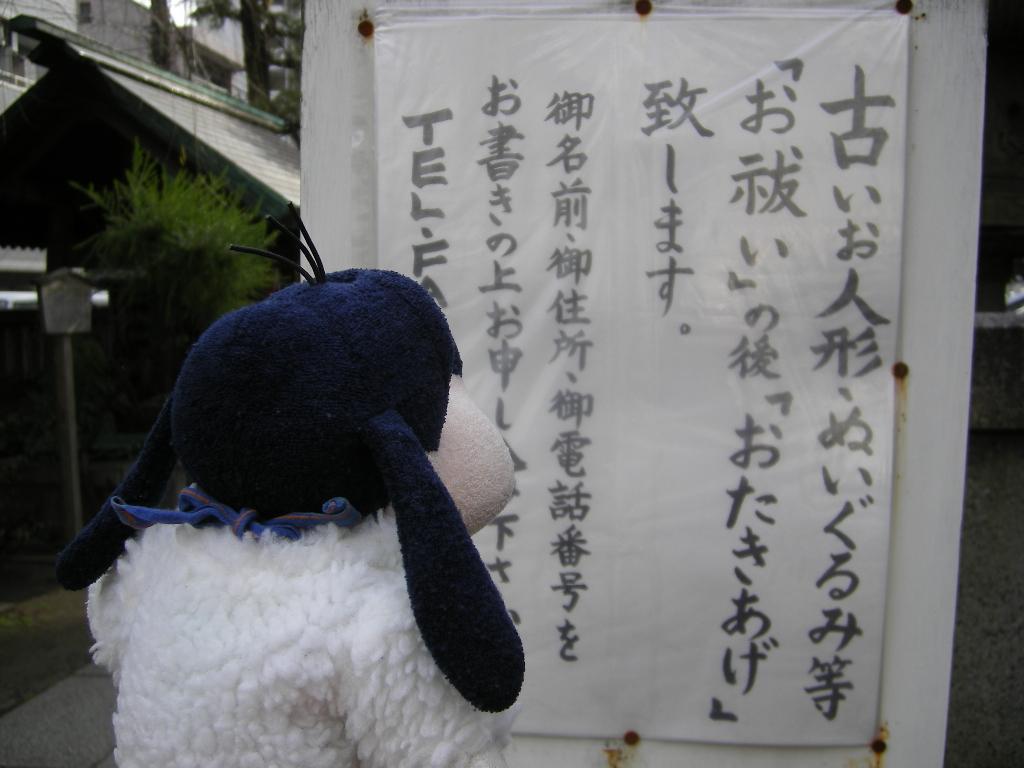 古いお人形、ぬいぐるみ等
「お祓い」の後「おたきあげ」
致します。
御名前、御住所、御電話番号を
お書きの上お申し 下さ
TEL・FA